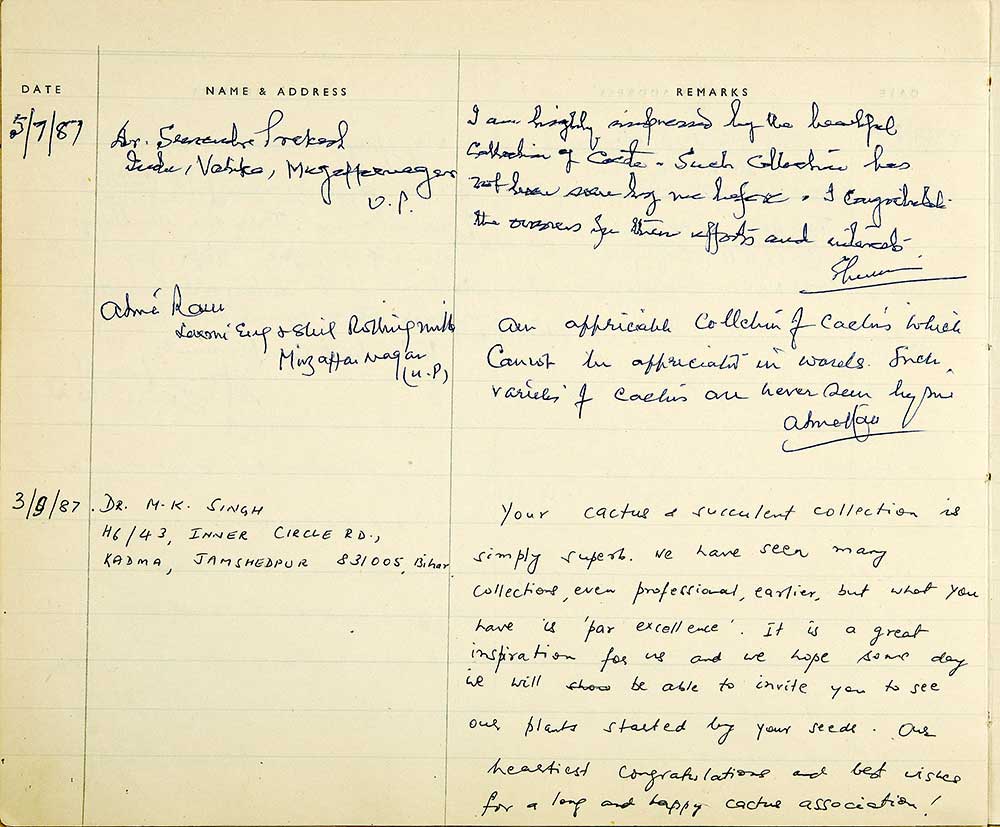 DATE NAME & ADDRESS REMARKS
5/7/87
Dr. Surendra Prakash
Vatika, Muzaffarnagar
U.P.
I am highly impressed by the beautiful
Collection of Cacti. Such Collection has
not been seen by me before. I congratulate
the owners for their efforts and interests
Atmé Ram
Laxmi Eng & Steel Rolling mills
Muzaffar Nagar
(U.P)
an appriciable Collection of Cactus which
Cannot be appreciated in words. Such
varieties of cactus are never seen by me
AtmeRam
3/9/87. DR. M.K. SINGH
H6/43, INNER CIRCLE RD.,
KADMA, JAMSHEDPUR 831005, Bihar
Your cactus & succulent collection is
simply superb. We have seen many
collections, even professional, earlier, but what you
have is 'par excellence'. It is a great
inspiration for us and we hope some day
we will be able to invite you to see
our plants started by your seeds. Our
heartiest congratulations and best wishes
for a long and happy cactus association!